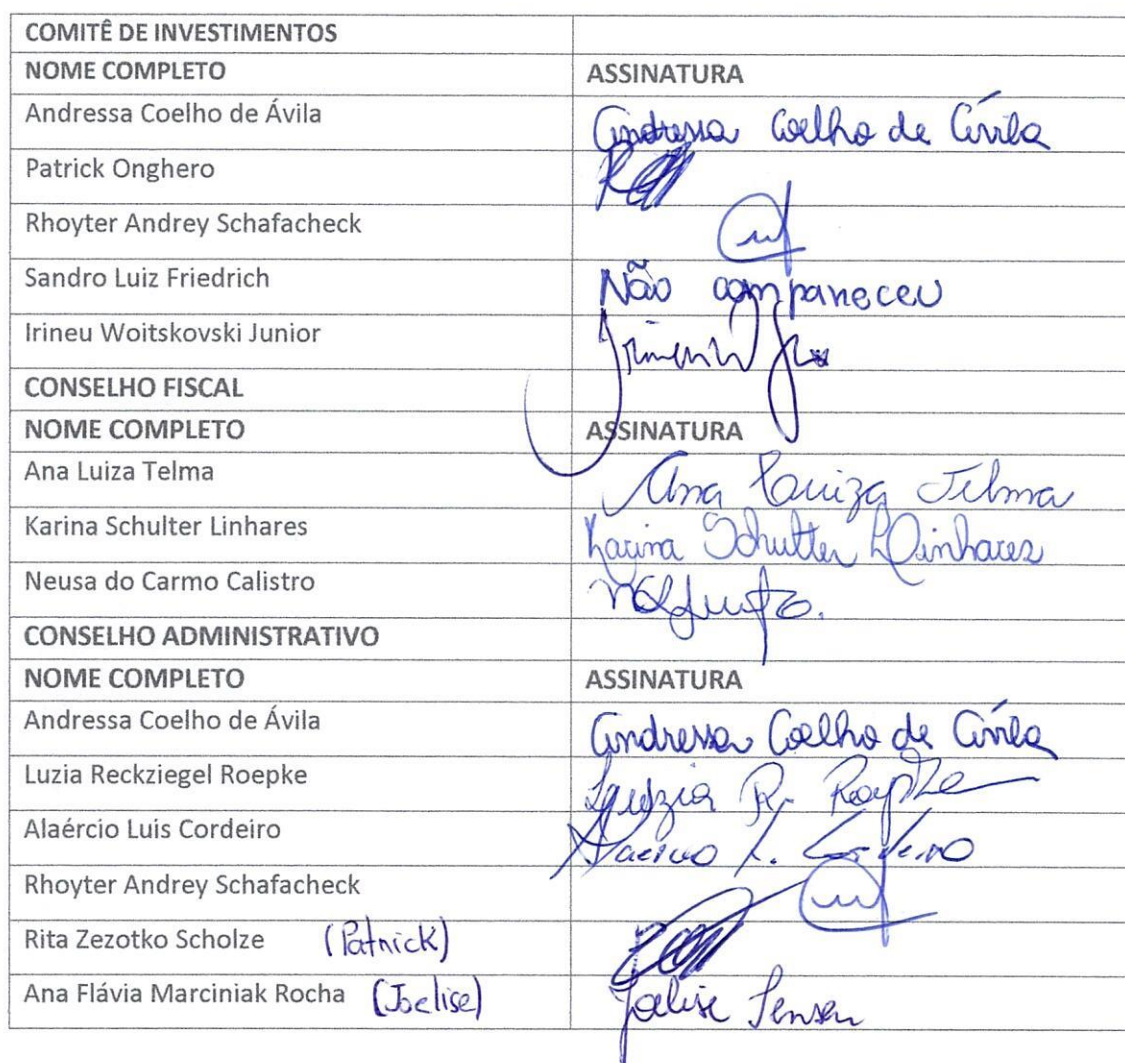 COMITÊ DE INVESTIMENTOS
NOME COMPLETO ASSINATURA
Andressa Coelho de Ávila Andressa Coelho de Ávila
Patrick Onghero
Rhoyter Andrey Schafacheck
Sandro Luiz Friedrich Não compareceu
Irineu Woitskovski Junior
CONSELHO FISCAL
NOME COMPLETO ASSINATURA
Ana Luiza Telma Ana Luiza Telma
Karina Schulter Linhares Karina Schulter Linhares
Neusa do Carmo Calistro
CONSELHO ADMINISTRATIVO
NOME COMPLETO ASSINATURA
Andressa Coelho de Ávila Andressa Coelho de Ávila
Luzia Reckziegel Roepke Luzia R. Roepke
Alaércio Luis Cordeiro Alaercio L. Cordeiro
Rhoyter Andrey Schafacheck
Rita Zezotko Scholze (Patrick)
Ana Flávia Marciniak Rocha (Joelise) Joelise Jensen